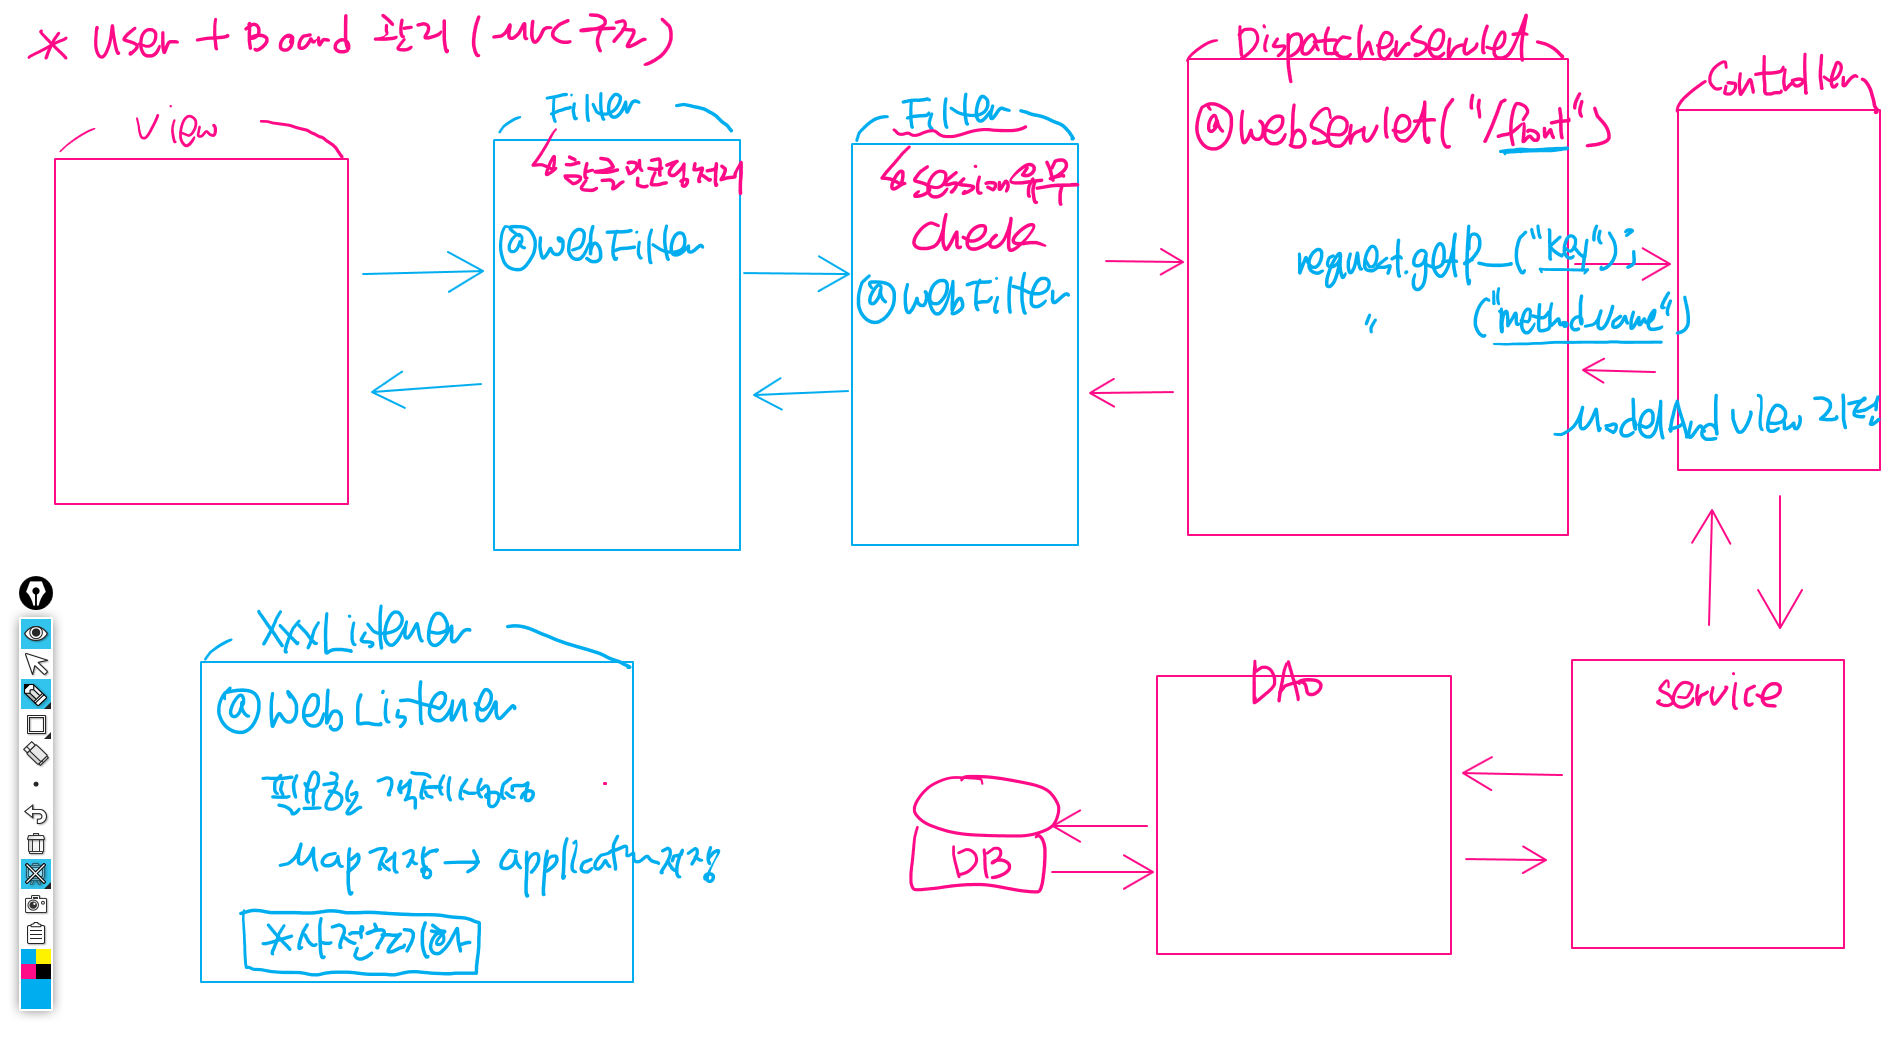 * User + Board 관리 (MVC구조)
View
Filter
↳ 한글인코딩처리
@WebFilter
Filter
↳ session유무
check
@WebFilter
DispatcherServlet
@WebServlet("/front")
request.getP—("key");
" ("methodName")
Controller
ModelAndView 리턴
XxxListener
@WebListener
필요한 객체생성
Map 저장 → application저장
*사전초기화
DAO
service
DB